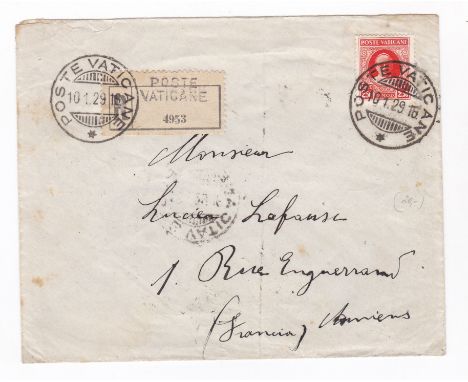 POSTE VATICANE
10.1.29 16
POSTE
VATICANE
4953
POSTE VATICANE
POSTE VATICANE
10.1.29 16
Monsieur
Lucien Lafausse
1, Rue Enguerrand
(Francia) Amiens